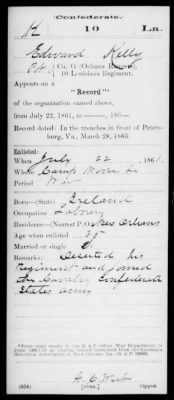 Confederate.
K 10 La.
Edward Kelly
Pvt., Co. G (Orleans
10 Louisiana Regiment.
Appears on a
"Record"
of the organization named above,
from July 22, 1861, to ———, 186—.
Record dated: In the trenches in front of Peters-
burg, Va., March 28, 1865.
Enlisted:
When July 22, 1861.
Where Camp Moore La
Period War
Born—(State) Ireland
Occupation Laborer
Residence—(Nearest P.O.) New Orleans
Age when enlisted 35
Married or single S.
Remarks: Deserted his
Regiment and joined
the Cavalry Confederate
States Army
(656)
Copyist.